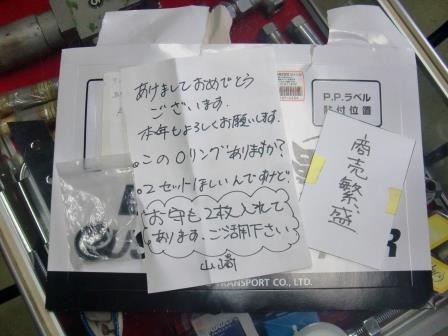 あけましておめでとう
ございます.
本年もよろしくお願いします.
●この Oリング ありますか?
●2セットほしいんですけど.
お守も2枚入れて
あります、ご活用下さい
山﨑
P.P.ラベル
貼付位置
商売繁盛
TRANSPORT CO., LTD.